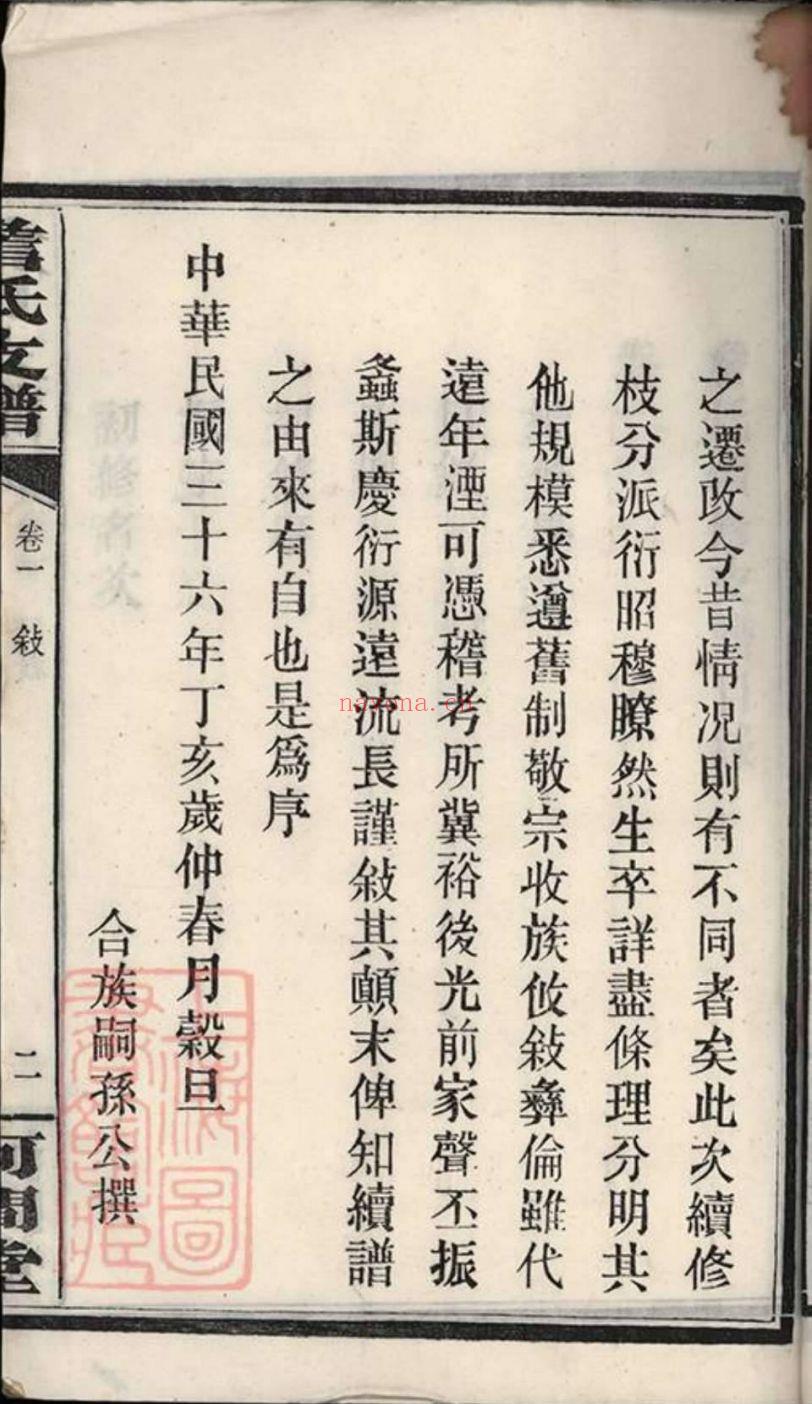 之遷改今昔情況則有不同者矣此次續修
枝分派衍昭穆瞭然生卒詳盡條理分明其
他規模悉遵舊制敬宗收族攸敍彝倫雖代
遠年湮可憑稽考所冀裕後光前家聲丕振
螽斯慶衍源遠流長謹敍其顛末俾知續譜
之由來有自也是爲序
中華民國三十六年丁亥歲仲春月穀旦
合族嗣孫公撰
詹氏支譜
卷一 敍
二
河間堂